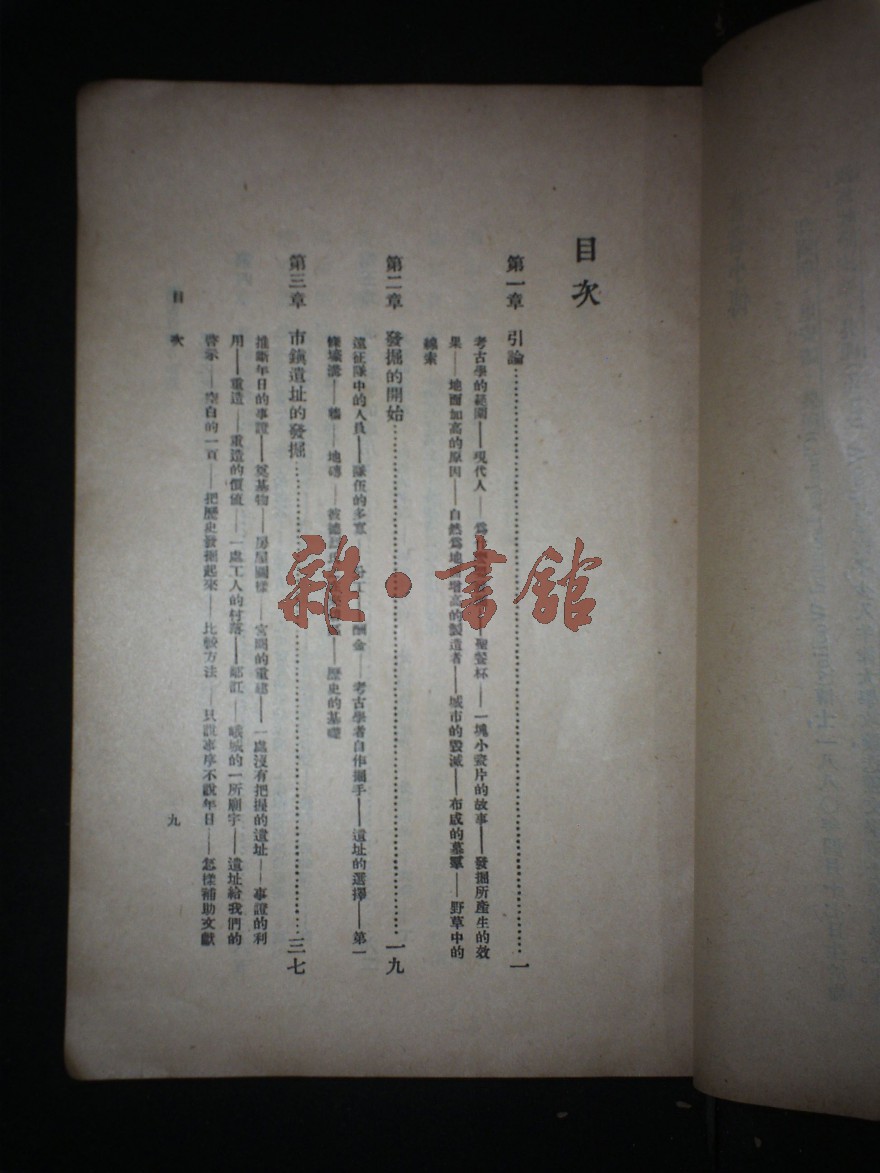 目次
第一章 引論……一
考古學的範圍——現代人——爲 聖餐杯——一塊小瓷片的故事——發掘所產生的效
果——地面加高的原因——自然爲地面增高的製造者——城市的毀滅——布咸的墓羣——野草中的
線索
第二章 發掘的開始……一九
遠征隊中的人員——隊伍的多寡—— 酬金——考古學者自作掘手——遺址的選擇——第一
條壕溝——牆——地磚—— ——歷史的基礎
第三章 市鎭遺址的發掘……三七
推斷年日的事證——奠基物——房屋圖樣——宮闕的重建——一處沒有把握的遺址——事證的利
用——重造——重造的價值——一處工人的村落—— ——峨城的一所廟宇——遺址給我們的
啓示——空白的一頁——把歷史發掘起來——比較方法——只說事序不說年日——怎樣補助文獻
目次
九
雜·書館